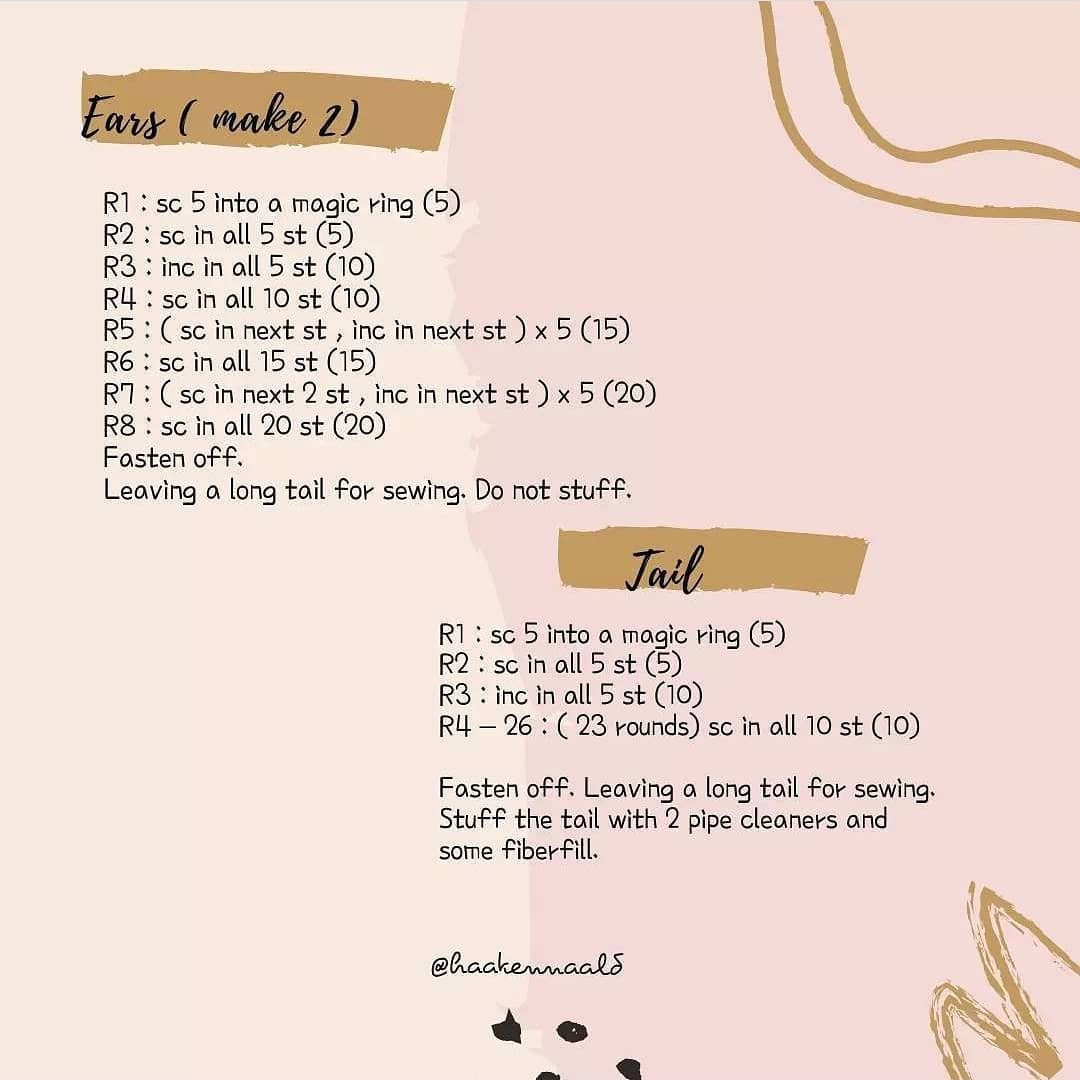 Ears ( make 2)
R1 : sc 5 into a magic ring (5)
R2 : sc in all 5 st (5)
R3 : inc in all 5 st (10)
R4 : sc in all 10 st (10)
R5 : ( sc in next st , inc in next st ) x 5 (15)
R6 : sc in all 15 st (15)
R7 : ( sc in next 2 st , inc in next st ) x 5 (20)
R8 : sc in all 20 st (20)
Fasten off.
Leaving a long tail for sewing. Do not stuff.
Tail
R1 : sc 5 into a magic ring (5)
R2 : sc in all 5 st (5)
R3 : inc in all 5 st (10)
R4 – 26 : ( 23 rounds) sc in all 10 st (10)
Fasten off. Leaving a long tail for sewing.
Stuff the tail with 2 pipe cleaners and
some fiberfill.
@haakennaald